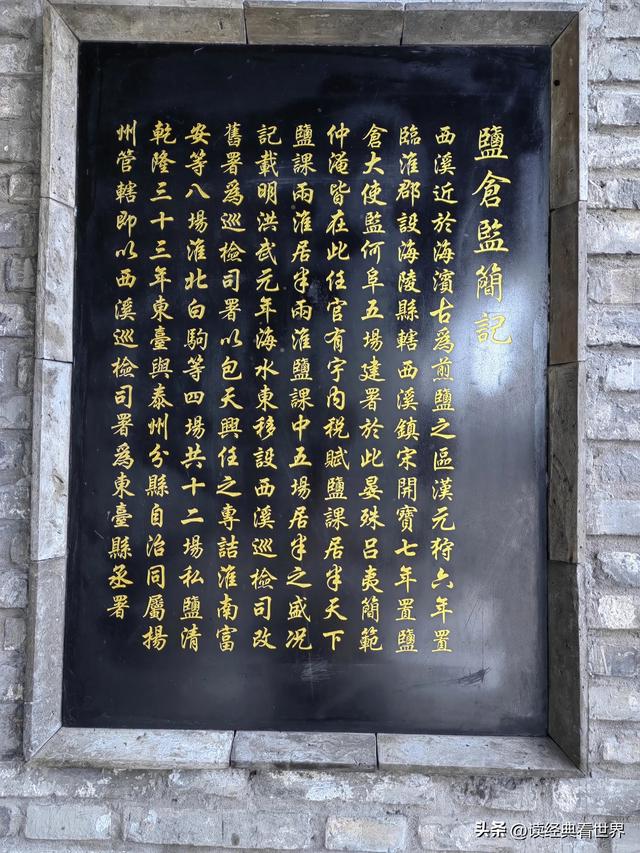 鹽倉監簡記
西溪近於海濱古爲煎鹽之區漢元狩六年置
臨淮郡設海陵縣轄西溪鎮宋開寶七年置鹽
倉大使監何阜五場建署於此晏殊呂夷簡範
仲淹皆在此任官有宇內稅賦鹽課居半天下
鹽課兩淮居半兩淮鹽課中五場居半之盛况
記載明洪武元年海水東移設西溪巡檢司改
舊署爲巡檢司署以包天興任之專詰淮南富
安等八場淮北白駒等四場共十二場私鹽清
乾隆三十三年東臺與泰州分縣自治同屬揚
州管轄即以西溪巡檢司署爲東臺縣丞署
头条 @读经典看世界